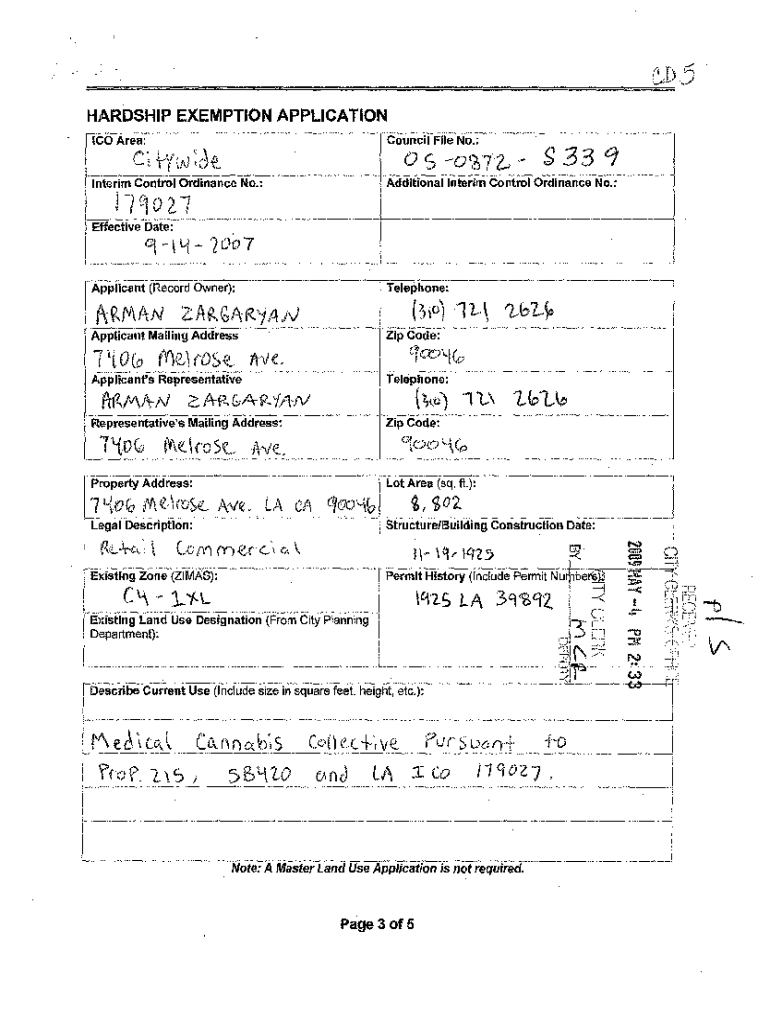 CD5
HARDSHIP EXEMPTION APPLICATION
ICO Area:
Citywide
Council File No.:
05-0872- S339
Interim Control Ordinance No.:
179027
Additional Interim Control Ordinance No.:
Effective Date:
9-14-2007
Applicant (Record Owner):
ARMAN ZARGARYAN
Telephone:
(310) 721 2626
Applicant Mailing Address
7406 Melrose Ave.
Zip Code:
90046
Applicant's Representative
ARMAN ZARGARYAN
Telephone:
(310) 721 2626
Representative's Mailing Address:
7406 Melrose Ave.
Zip Code:
90046
Property Address:
7406 Melrose Ave. LA CA 90046
Lot Area (sq. ft.):
8,802
Legal Description:
Retail Commercial
Structure/Building Construction Date:
11-19-1925
Existing Zone (ZIMAS):
C4-1XL
Permit History (Include Permit Numbers):
1925 LA 39892
Existing Land Use Designation (From City Planning
Department):
RECEIVED
2009 MAY -4 PM 2:33
BY
CITY CLERK
DEPUTY
P/S
Describe Current Use (Include size in square feet, height, etc.):
Medical Cannabis Collective Pursuant to
Prop. 215, SB420 and LA ICO 179027.
Note: A Master Land Use Application is not required.
Page 3 of 5